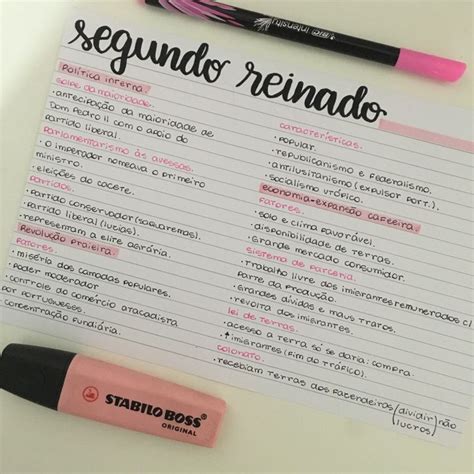 intensity
segundo reinado
Política interna
golpe da maioridade.
·antecipação da maioridade de
Dom Pedro II com o apoio do
partido liberal.
parlamentarismo às avessas.
·o imperador nomeava o primeiro
ministro.
·eleições do cacete.
partidos.
·partido conservador (saquaremas).
·partido liberal (luzias).
·representam a elite agrária.
Revolução praieira.
fatores.
·miséria das camadas populares.
·poder moderador
·controle do comércio atacadista
por portugueses.
·concentração fundiária.
características.
·popular.
·republicanismo e federalismo.
·antilusitanismo (expulsar port.).
·socialismo utópico.
economia-expansão cafeeira.
fatores.
·solo e clima favorável.
·disponibilidade de terras.
·grande mercado consumidor.
sistema de parceria.
·trabalho livre dos imigrantes remunerados c/
parte da produção.
·grandes dívidas e maus tratos.
·revolta dos imigrantes.
lei de terras.
·acesso a terra só se daria: compra.
·↑imigrantes (fim do tráfico).
colonato.
·recebiam terras dos fazendeiros (dividir não
lucros)
STABILO BOSS
ORIGINAL